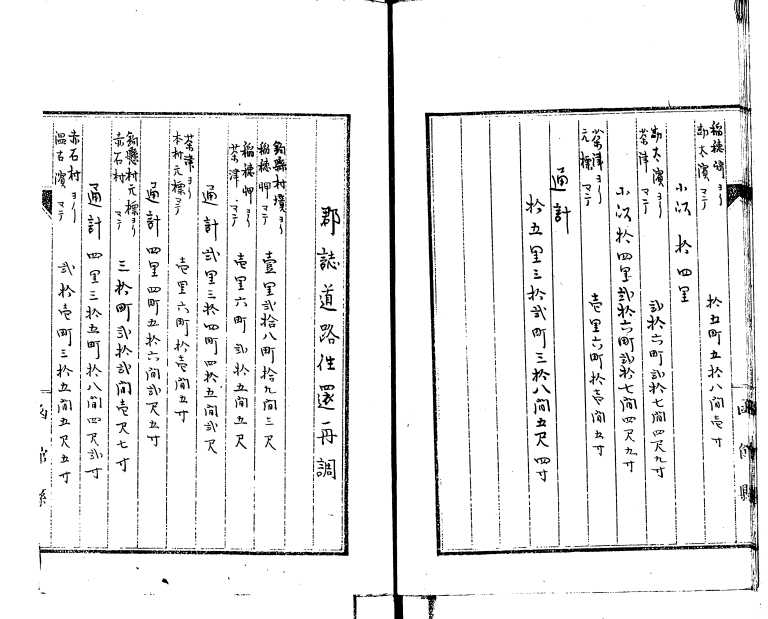 稲穂峠ヨリ
幌太濱マテ 拾五町五拾八間壱寸
小以 拾四里
幌太濱ヨリ
茶津マテ 弐拾六町弐拾七間四尺九寸
小以拾四里弐拾六町弐拾七間四尺九寸
茶津ヨリ
元標マテ 壱里六町拾壱間五寸
通計
拾五里三拾弐町三拾八間五尺四寸
函館縣
郡誌道路往還再調
鈎懸村境ヨリ
稲穂岬マテ 壹里弐拾八町拾九間三尺
稲穂岬ヨリ
茶津マテ 壱里六町弐拾五間五尺
通計 弐里三拾四町四拾五間弐尺
茶津ヨリ
本村元標マテ 壱里六町拾壱間五寸
通計 四里四町五拾六間弐尺五寸
鈎懸村元標ヨリ
赤石村マテ 三拾町弐拾弐間壱尺七寸
通計 四里三拾五町拾八間四尺弐寸
赤石村ヨリ
濱マテ 弐拾壱町三拾五間五尺五寸
函館縣